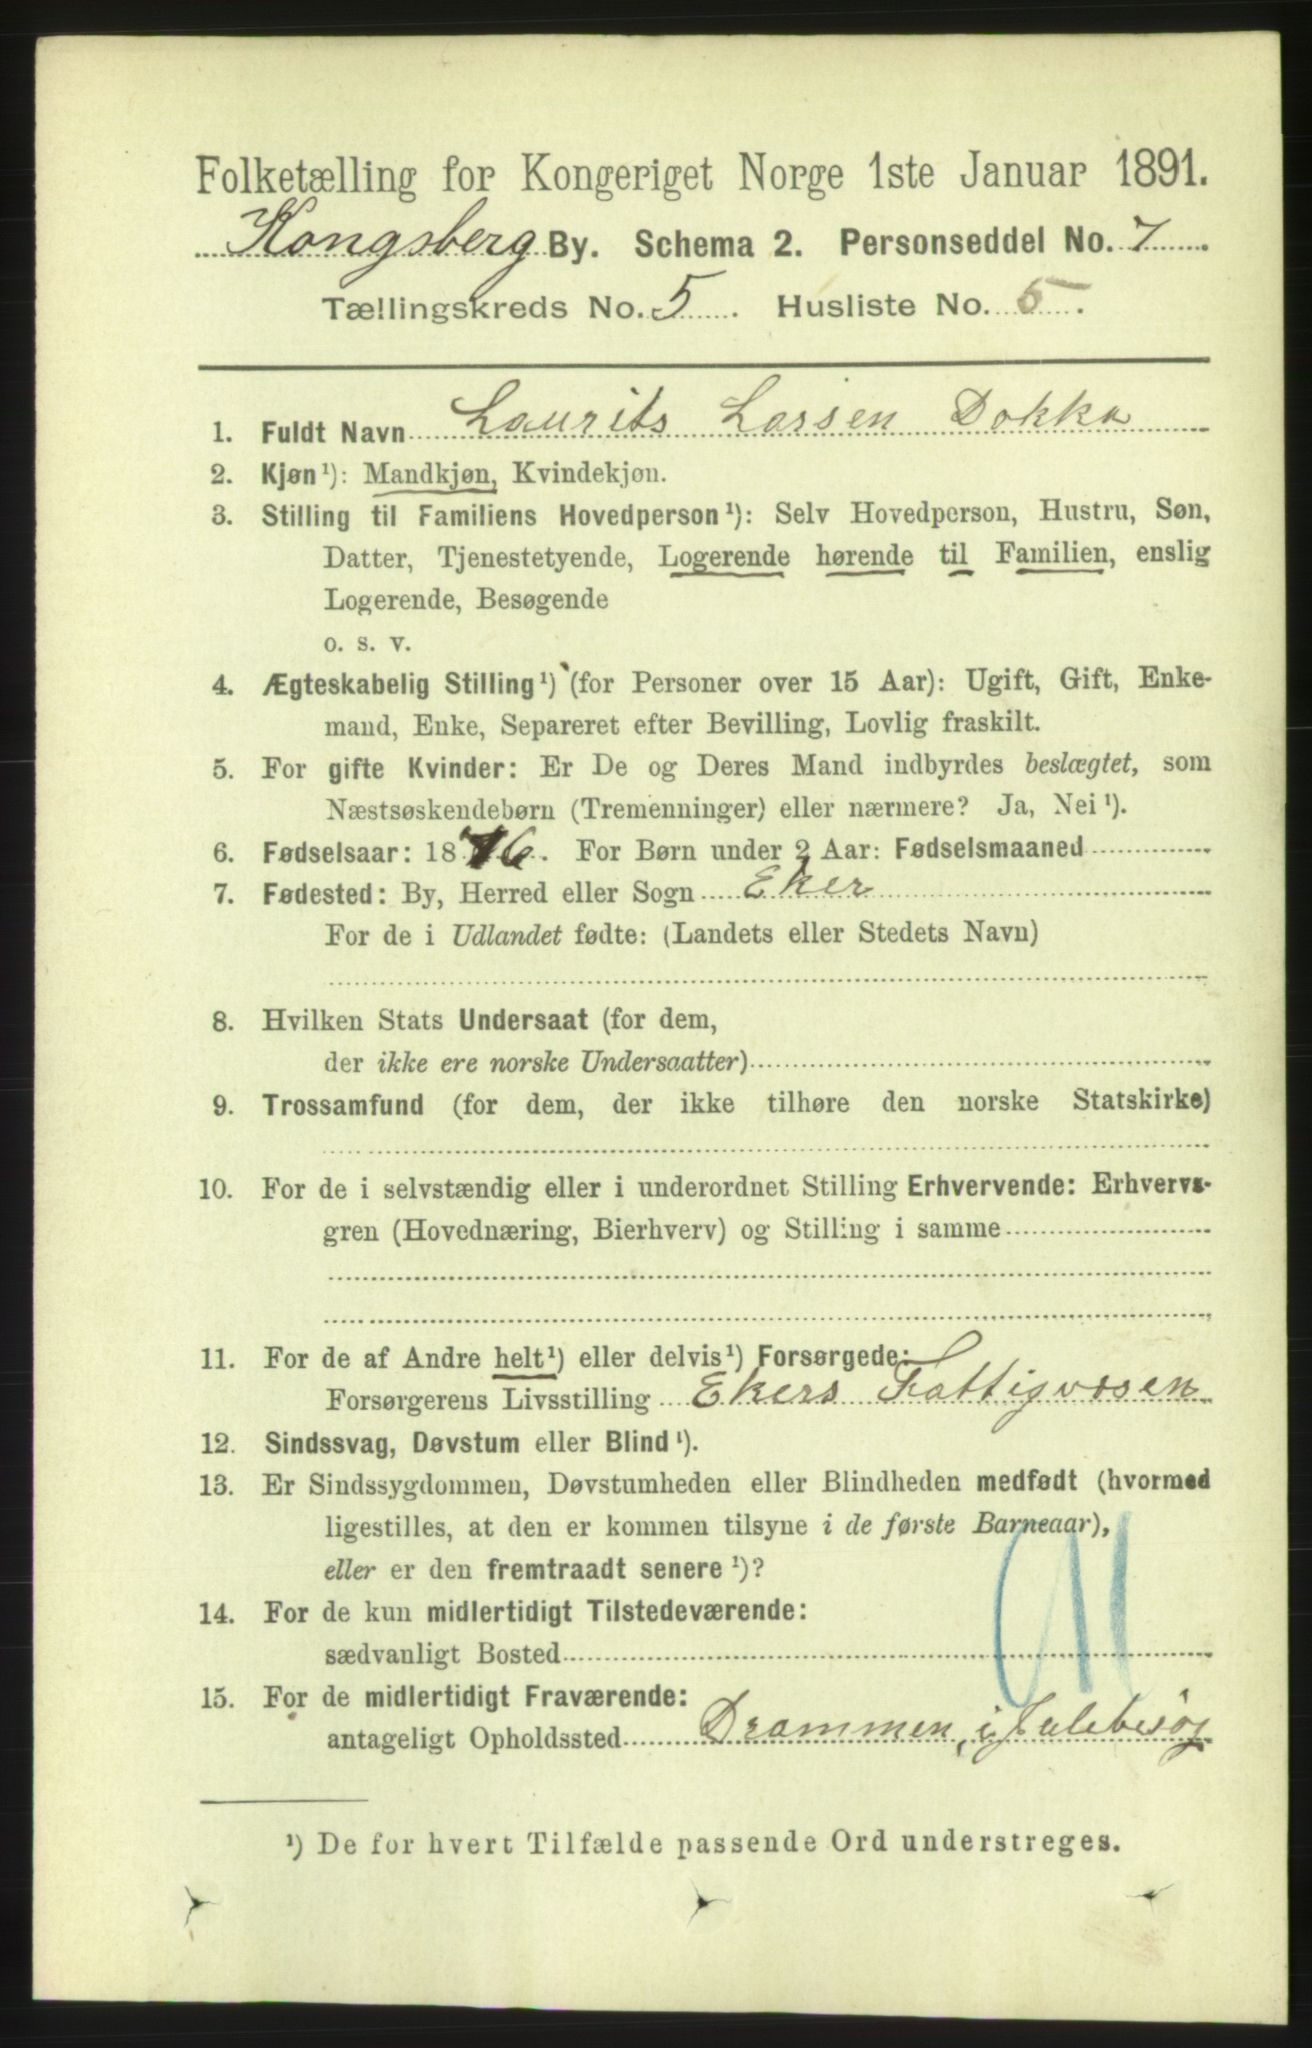 Folketælling for Kongeriget Norge 1ste Januar 1891.
Kongsberg By. Schema 2. Personseddel No. 7.
Tællingskreds No. 5. Husliste No. 5.
1. Fuldt Navn Laurits Larsen Dokka
2. Kjøn¹): Mandkjøn, Kvindekjøn.
3. Stilling til Familiens Hovedperson¹): Selv Hovedperson, Hustru, Søn,
Datter, Tjenestetyende, Logerende hørende til Familien, enslig
Logerende, Besøgende
o. s. v.
4. Ægteskabelig Stilling¹) (for Personer over 15 Aar): Ugift, Gift, Enke-
mand, Enke, Separeret efter Bevilling, Lovlig fraskilt.
5. For gifte Kvinder: Er De og Deres Mand indbyrdes beslægtet, som
Næstsøskendebørn (Tremenninger) eller nærmere? Ja, Nei¹).
6. Fødselsaar: 1876. For Børn under 2 Aar: Fødselsmaaned
7. Fødested: By, Herred eller Sogn Eker
For de i Udlandet fødte: (Landets eller Stedets Navn)
8. Hvilken Stats Undersaat (for dem,
der ikke ere norske Undersaatter)
9. Trossamfund (for dem, der ikke tilhøre den norske Statskirke)
10. For de i selvstændig eller i underordnet Stilling Erhvervende: Erhvervs-
gren (Hovednæring, Bierhverv) og Stilling i samme
11. For de af Andre helt¹) eller delvis¹) Forsørgede:
Forsørgerens Livsstilling Ekers Fattigvæsen
12. Sindssvag, Døvstum eller Blind¹).
13. Er Sindssygdommen, Døvstumheden eller Blindheden medfødt (hvormed
ligestilles, at den er kommen tilsyne i de første Barneaar),
eller er den fremtraadt senere¹)?
14. For de kun midlertidigt Tilstedeværende:
sædvanligt Bosted
15. For de midlertidigt Fraværende:
antageligt Opholdssted Drammen, i Julebesøg
¹) De for hvert Tilfælde passende Ord understreges.